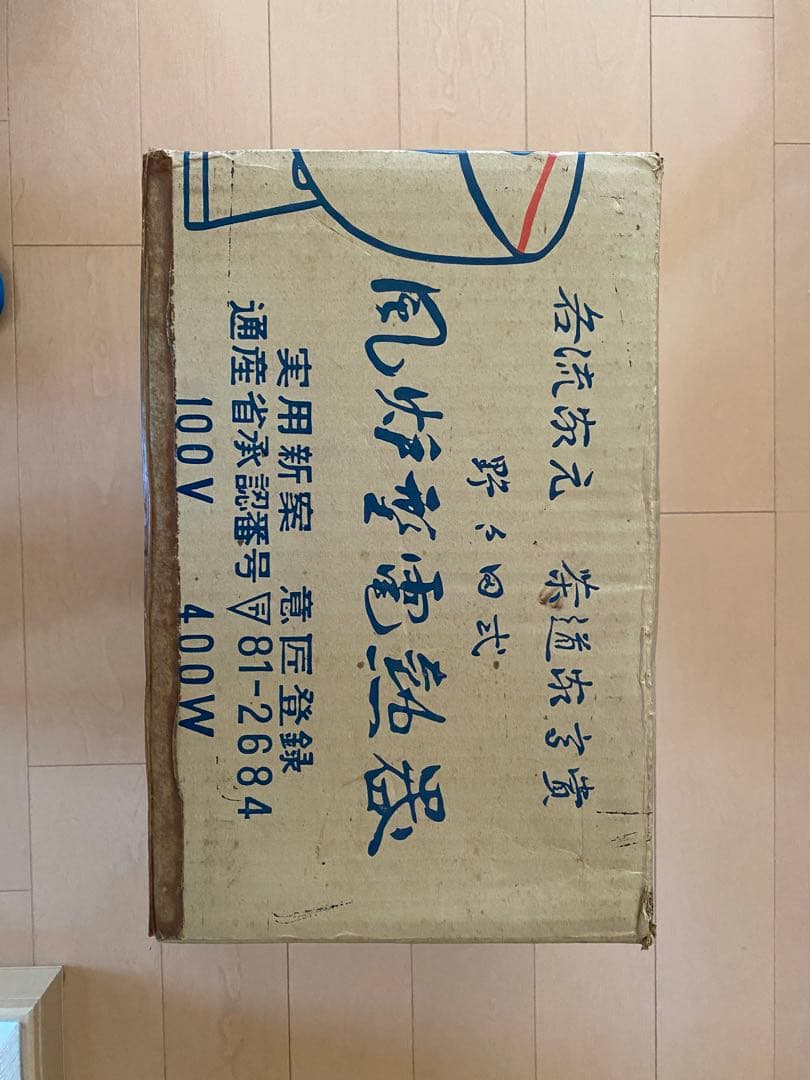 各流家元 茶道家
野々田式
風炉型電熱器
実用新案 意匠登録
通産省承認番号 ▽81-2684
100V 400W